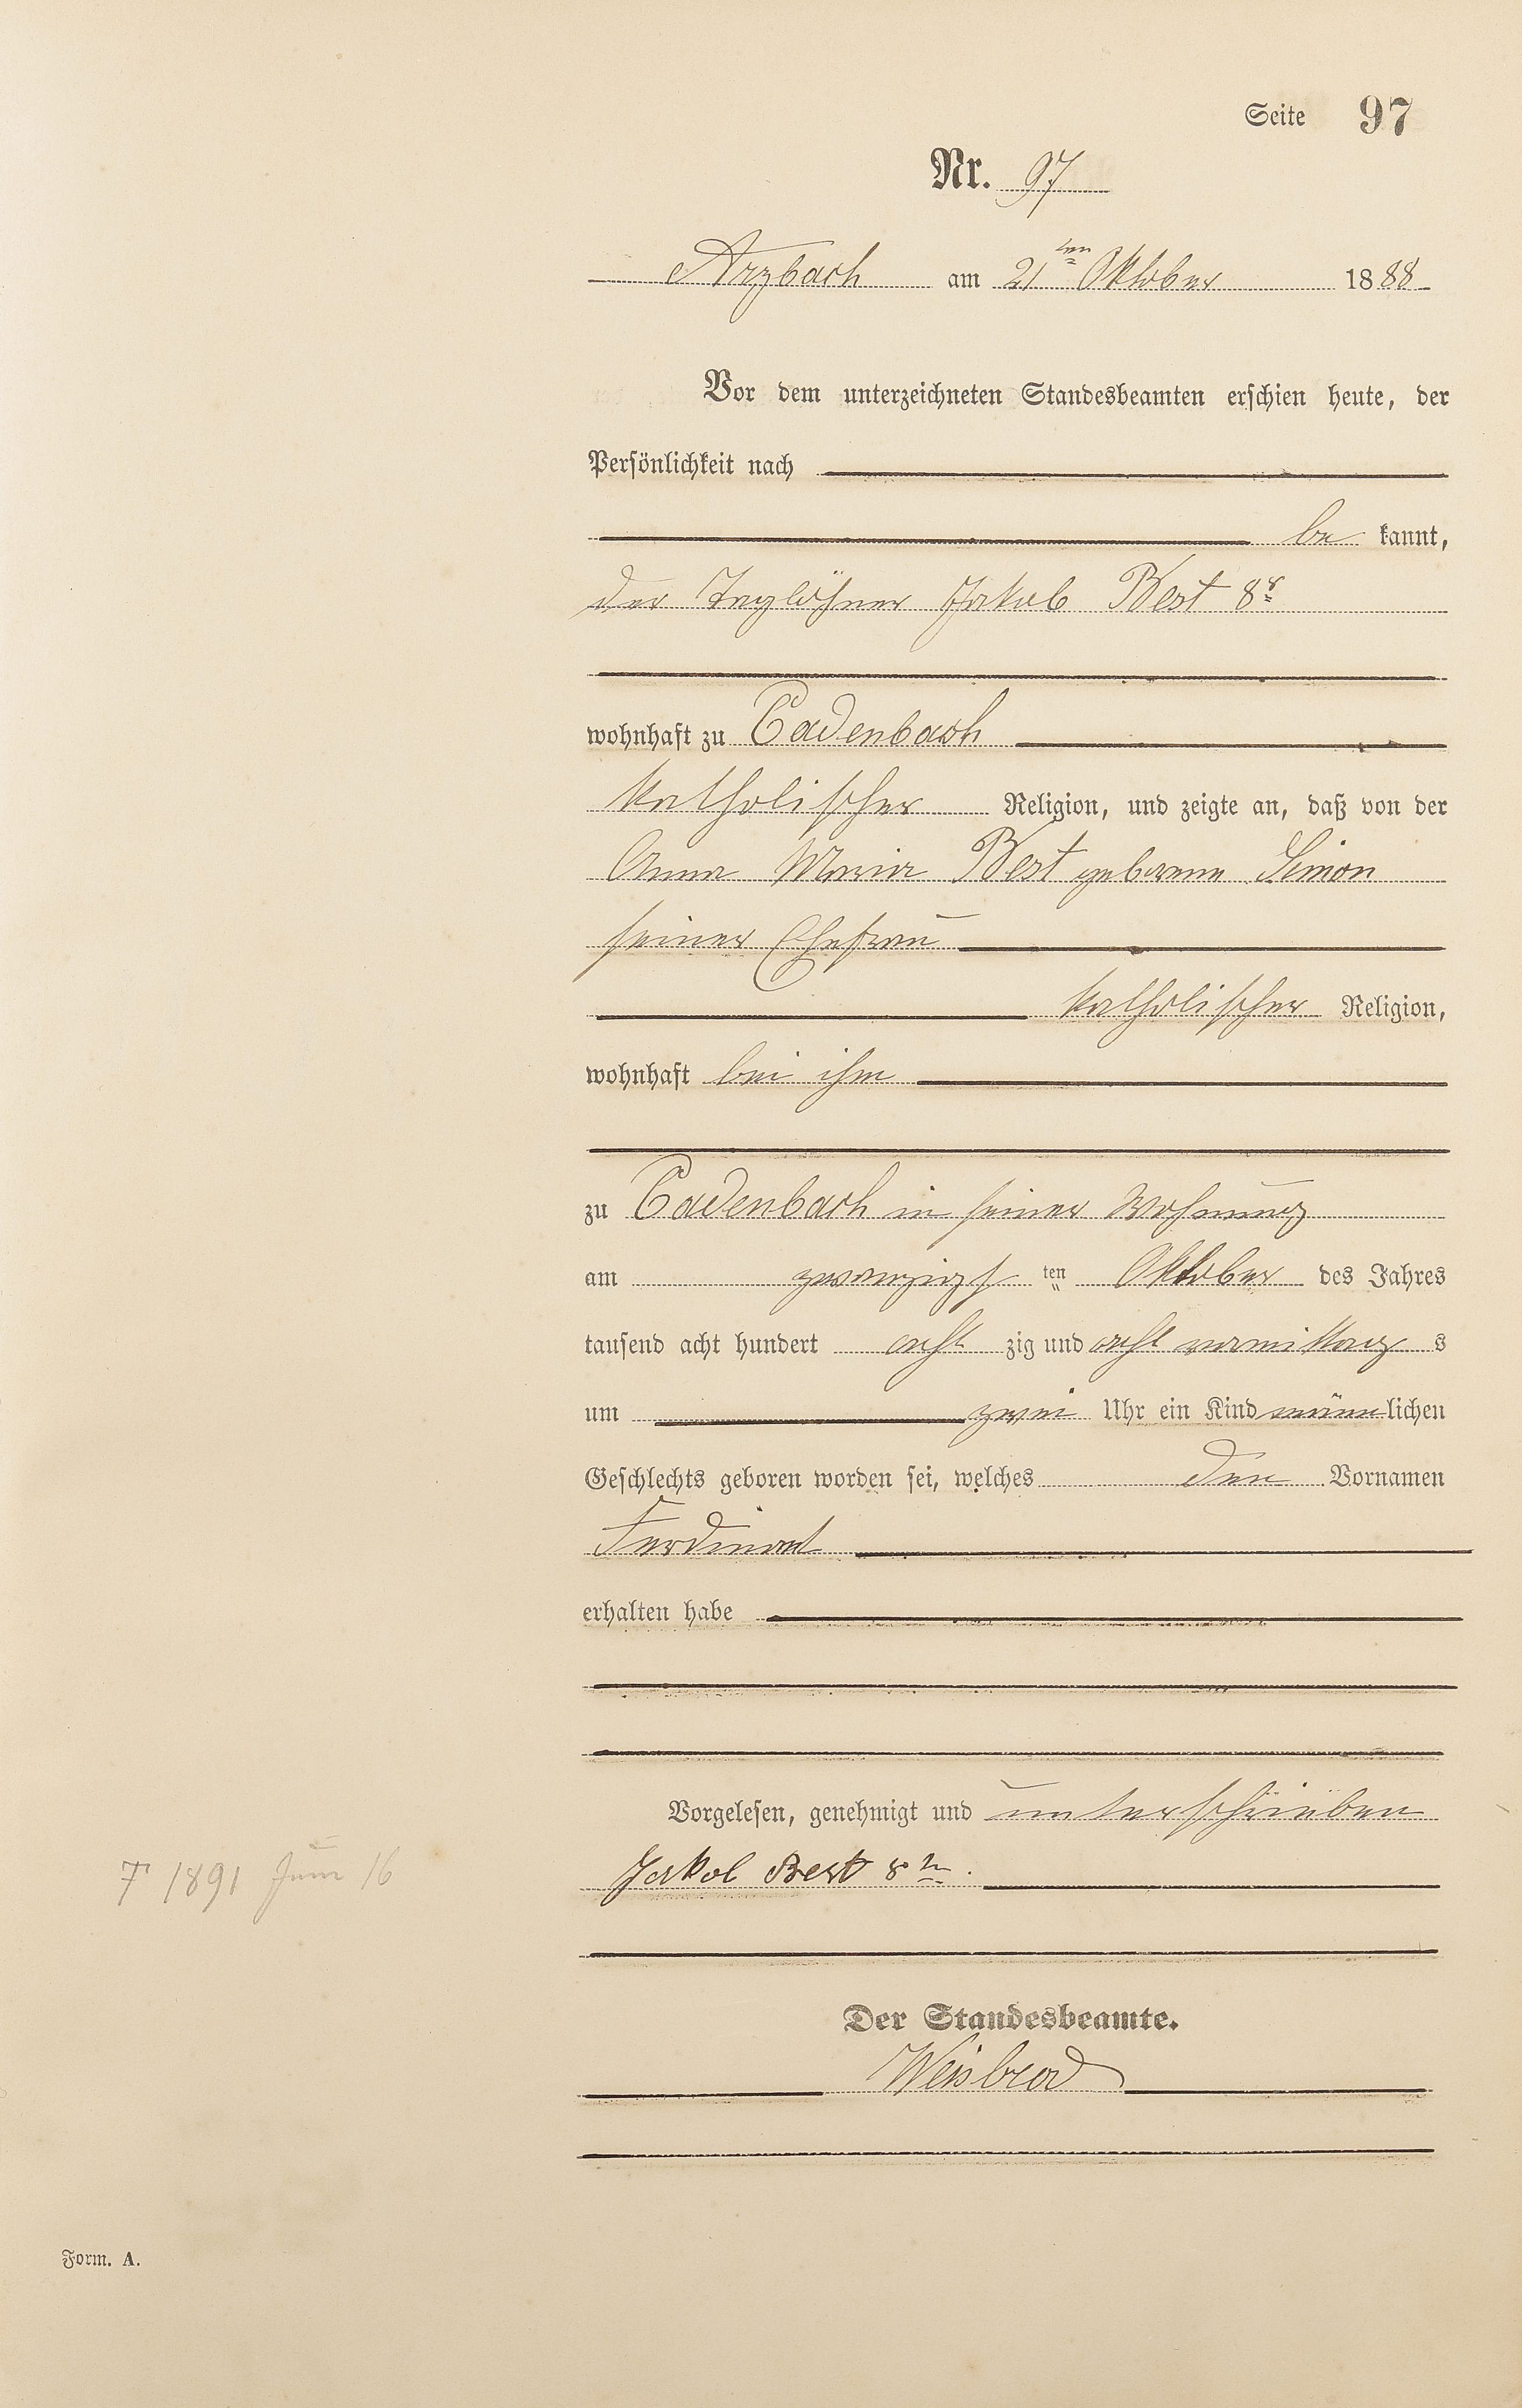 Seite 97
Nr. 97
Arzbach am 21ten Oktober 1888
Vor dem unterzeichneten Standesbeamten erschien heute, der
Persönlichkeit nach
be kannt,
der Taglöhner Jakob Best 8r
wohnhaft zu Cadenbach
katholischer Religion, und zeigte an, daß von der
Anna Maria Best geborene Simon
seiner Ehefrau
katholischer Religion,
wohnhaft bei ihm
zu Cadenbach in seiner Wohnung
am zwanzigsten Oktober des Jahres
tausend acht hundert acht zig und acht vormittag s
um zwei Uhr ein Kind männlichen
Geschlechts geboren worden sei, welches den Vornamen
Ferdinant
erhalten habe
Vorgelesen, genehmigt und unterschrieben
Jakob Best 8r
† 1891 Juni 16
Der Standesbeamte.
Weisbrod
Form. A.